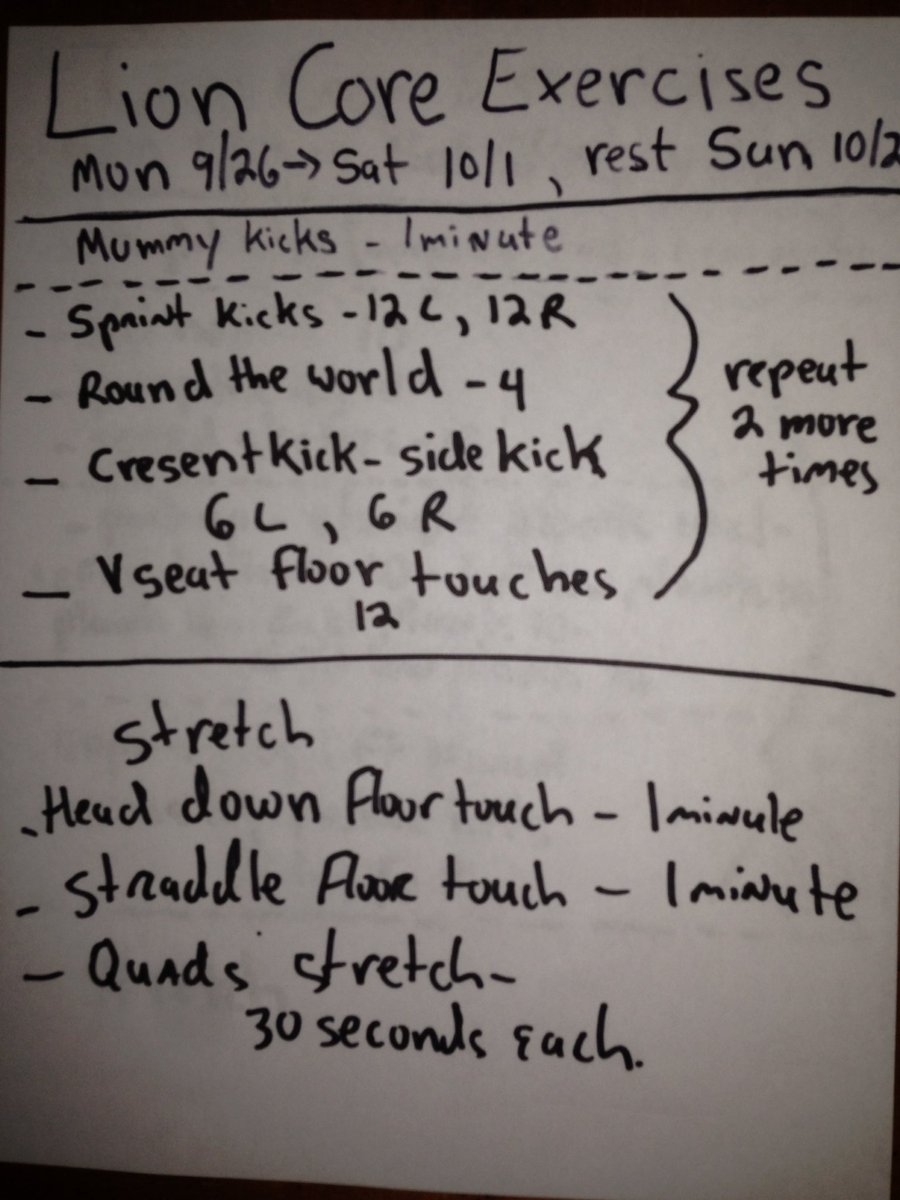 Lion Core Exercises
Mon 9/26→Sat 10/1, rest Sun 10/2
Mummy kicks - 1minute
- Sprint kicks - 12 L, 12 R
- Round the world - 4
- Cresent kick - side kick
6 L, 6 R
- V seat floor touches
12
repeat
2 more
times
stretch
- Head down floor touch - 1minute
- Straddle floor touch - 1minute
- Quads stretch -
30 seconds each.